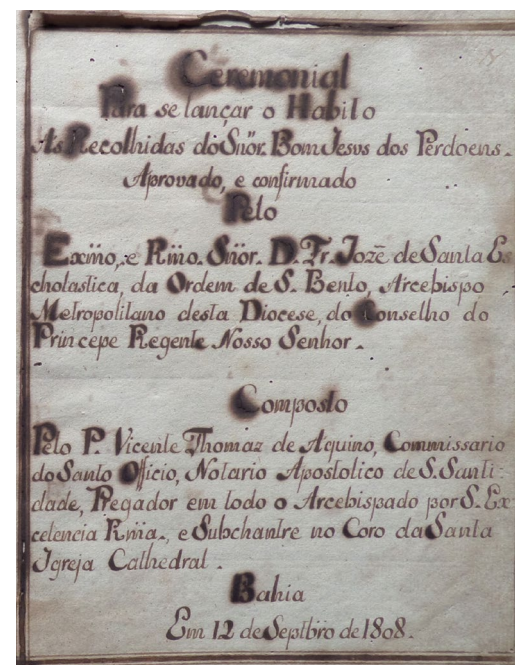 Ceremonial
Para se lançar o Habito
As Recolhidas do Snõr. Bom Jesus dos Perdoens.
Aprovado, e confirmado
Pelo
Exmõ, e Rmõ. Snõr. D. Fr. Jozê de Santa Es
cholastica, da Ordem de S. Bento, Arcebispo
Metropolitano desta Diocese, do Conselho do
Princepe Regente Nosso Senhor.
Composto
Pelo P. Vicente Thomaz de Aquino, Commissario
do Santo Officio, Notario Apostolico de S. Santi-
dade, Pregador em todo o Arcebispado por S. Ex-
celencia Rmã., e Subchantre no Coro da Santa
Igreja Cathedral.
Bahia
Em 12 de Septbro de 1808.